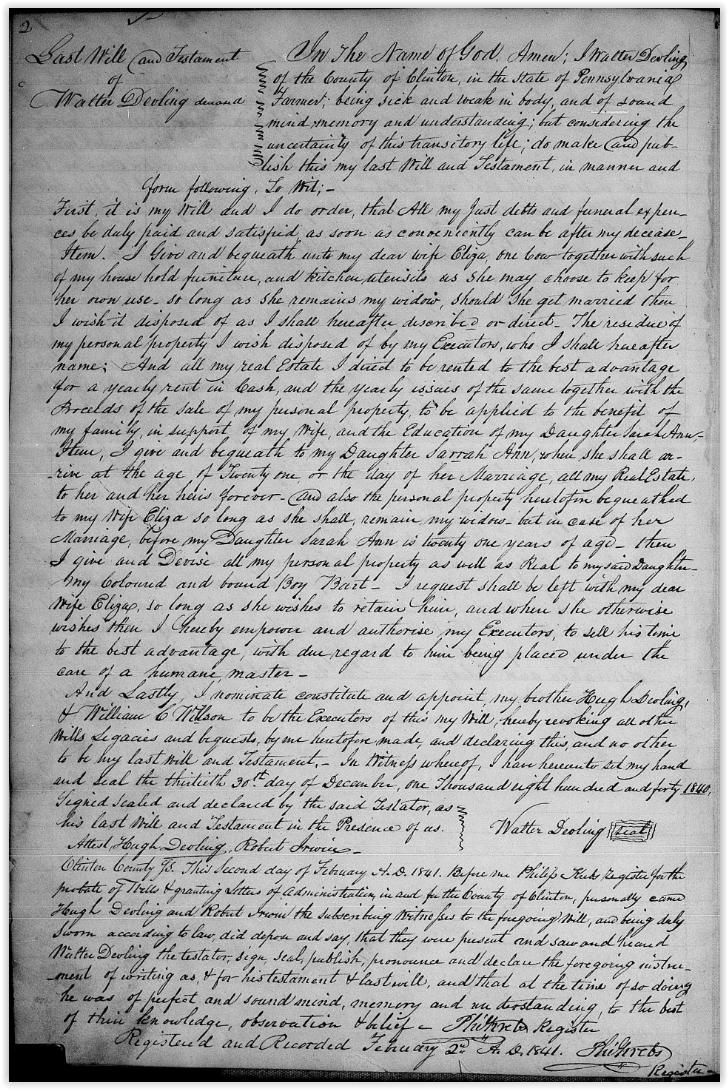 2
Last Will and Testament
of
Walter Devling decensd
In The Name of God. Amen; I Walter Devling
of the County of Clinton, in the State of Pennsylvania
Farmer; being sick and weak in body, and of sound
mind memory and understanding; but considering the
uncertainty of this transitory life; do make and pub-
lish this my last Will and Testament, in manner and
form following, To Wit;-
First, it is my Will and I do order, that All my Just debts and funeral expen-
ces be duly paid and satisfied, as soon as conveniently can be after my decease-
Item. I Give and bequeath unto my dear wife Eliza, one Cow together with such
of my house hold furniture, and Kitchen utensils as she may choose to keep for
her own use- so long as she remains my widow, should she get married then
I wish it disposed of as I shall hereafter described or direct- The residue of
my personal property I wish disposed of by my Executors, who I shall hereafter
name; And all my real Estate I direct to be rented to the best advantage
for a yearly rent in Cash, and the yearly issues of the same together with the
Proceeds of the sale of my personal property, to be applied to the benefit of
my family, in support of my Wife, and the Education of my Daughter Sarah Ann,-
Item, I give and bequeath to my Daughter Sarrah Ann, when she shall ar-
-rive at the age of Twenty one, or the day of her Marriage, all my Real Estate,
to her and her heirs forever- and also the personal property heretofore bequeathed
to my Wife Eliza so long as she shall, remain my widow- but in case of her
Marriage, before my Daughter Sarah Ann is twenty one years of age- then
I give and Devise all my personal property as well as Real to my said Daughter-
My Coloured and bound Boy Bart- I request shall be left with my dear
Wife Eliza, so long as she wishes to retain him, and when she otherwise
wishes then I hereby empower and authorise my Executors, to sell his time
to the best advantage, with due regard to him being placed under the
care of a humane, master-
And Lastly, I nominate constitute and appoint, my brother Hugh Devling,
& William C Wilson to be the Executors of this my Will, hereby revoking all other
Wills Legacies and bequests, by me heretofore made, and declaring this, and no other
to be my last Will and Testament,- In Witness whereof, I have hereunto set my hand
and seal the thirtieth 30th day of December, one Thousand eight hundred and forty 1840,
Signed Sealed and declared by the said Testator, as
his last Will and Testament in the Presence of us.
Walter Devling seal
Attest, Hugh Devling, Robert Irwin-
Clinton County SS. This Second day of February A.D. 1841. Before me Philip Krebs Register for the
probate of Wills & granting Letters of Administration, in and for the County of Clinton, personally came
Hugh Devling and Robert Irwin the subscribing Witnesses to the foregoing Will, and being duly
Sworn according to law, did depose and say, that they were present and saw and heard
Walter Devling the testator, sign, seal, publish, pronounce and declare the foregoing instru-
-ment of writing as, & for his testament & last will, and that at the time of so doing
he was of perfect and sound mind, memory and understanding, to the best
of their knowledge, observation & belief- Phil Krebs Register
Registered and Recorded February 2nd A.D. 1841. Phil Krebs
Register-